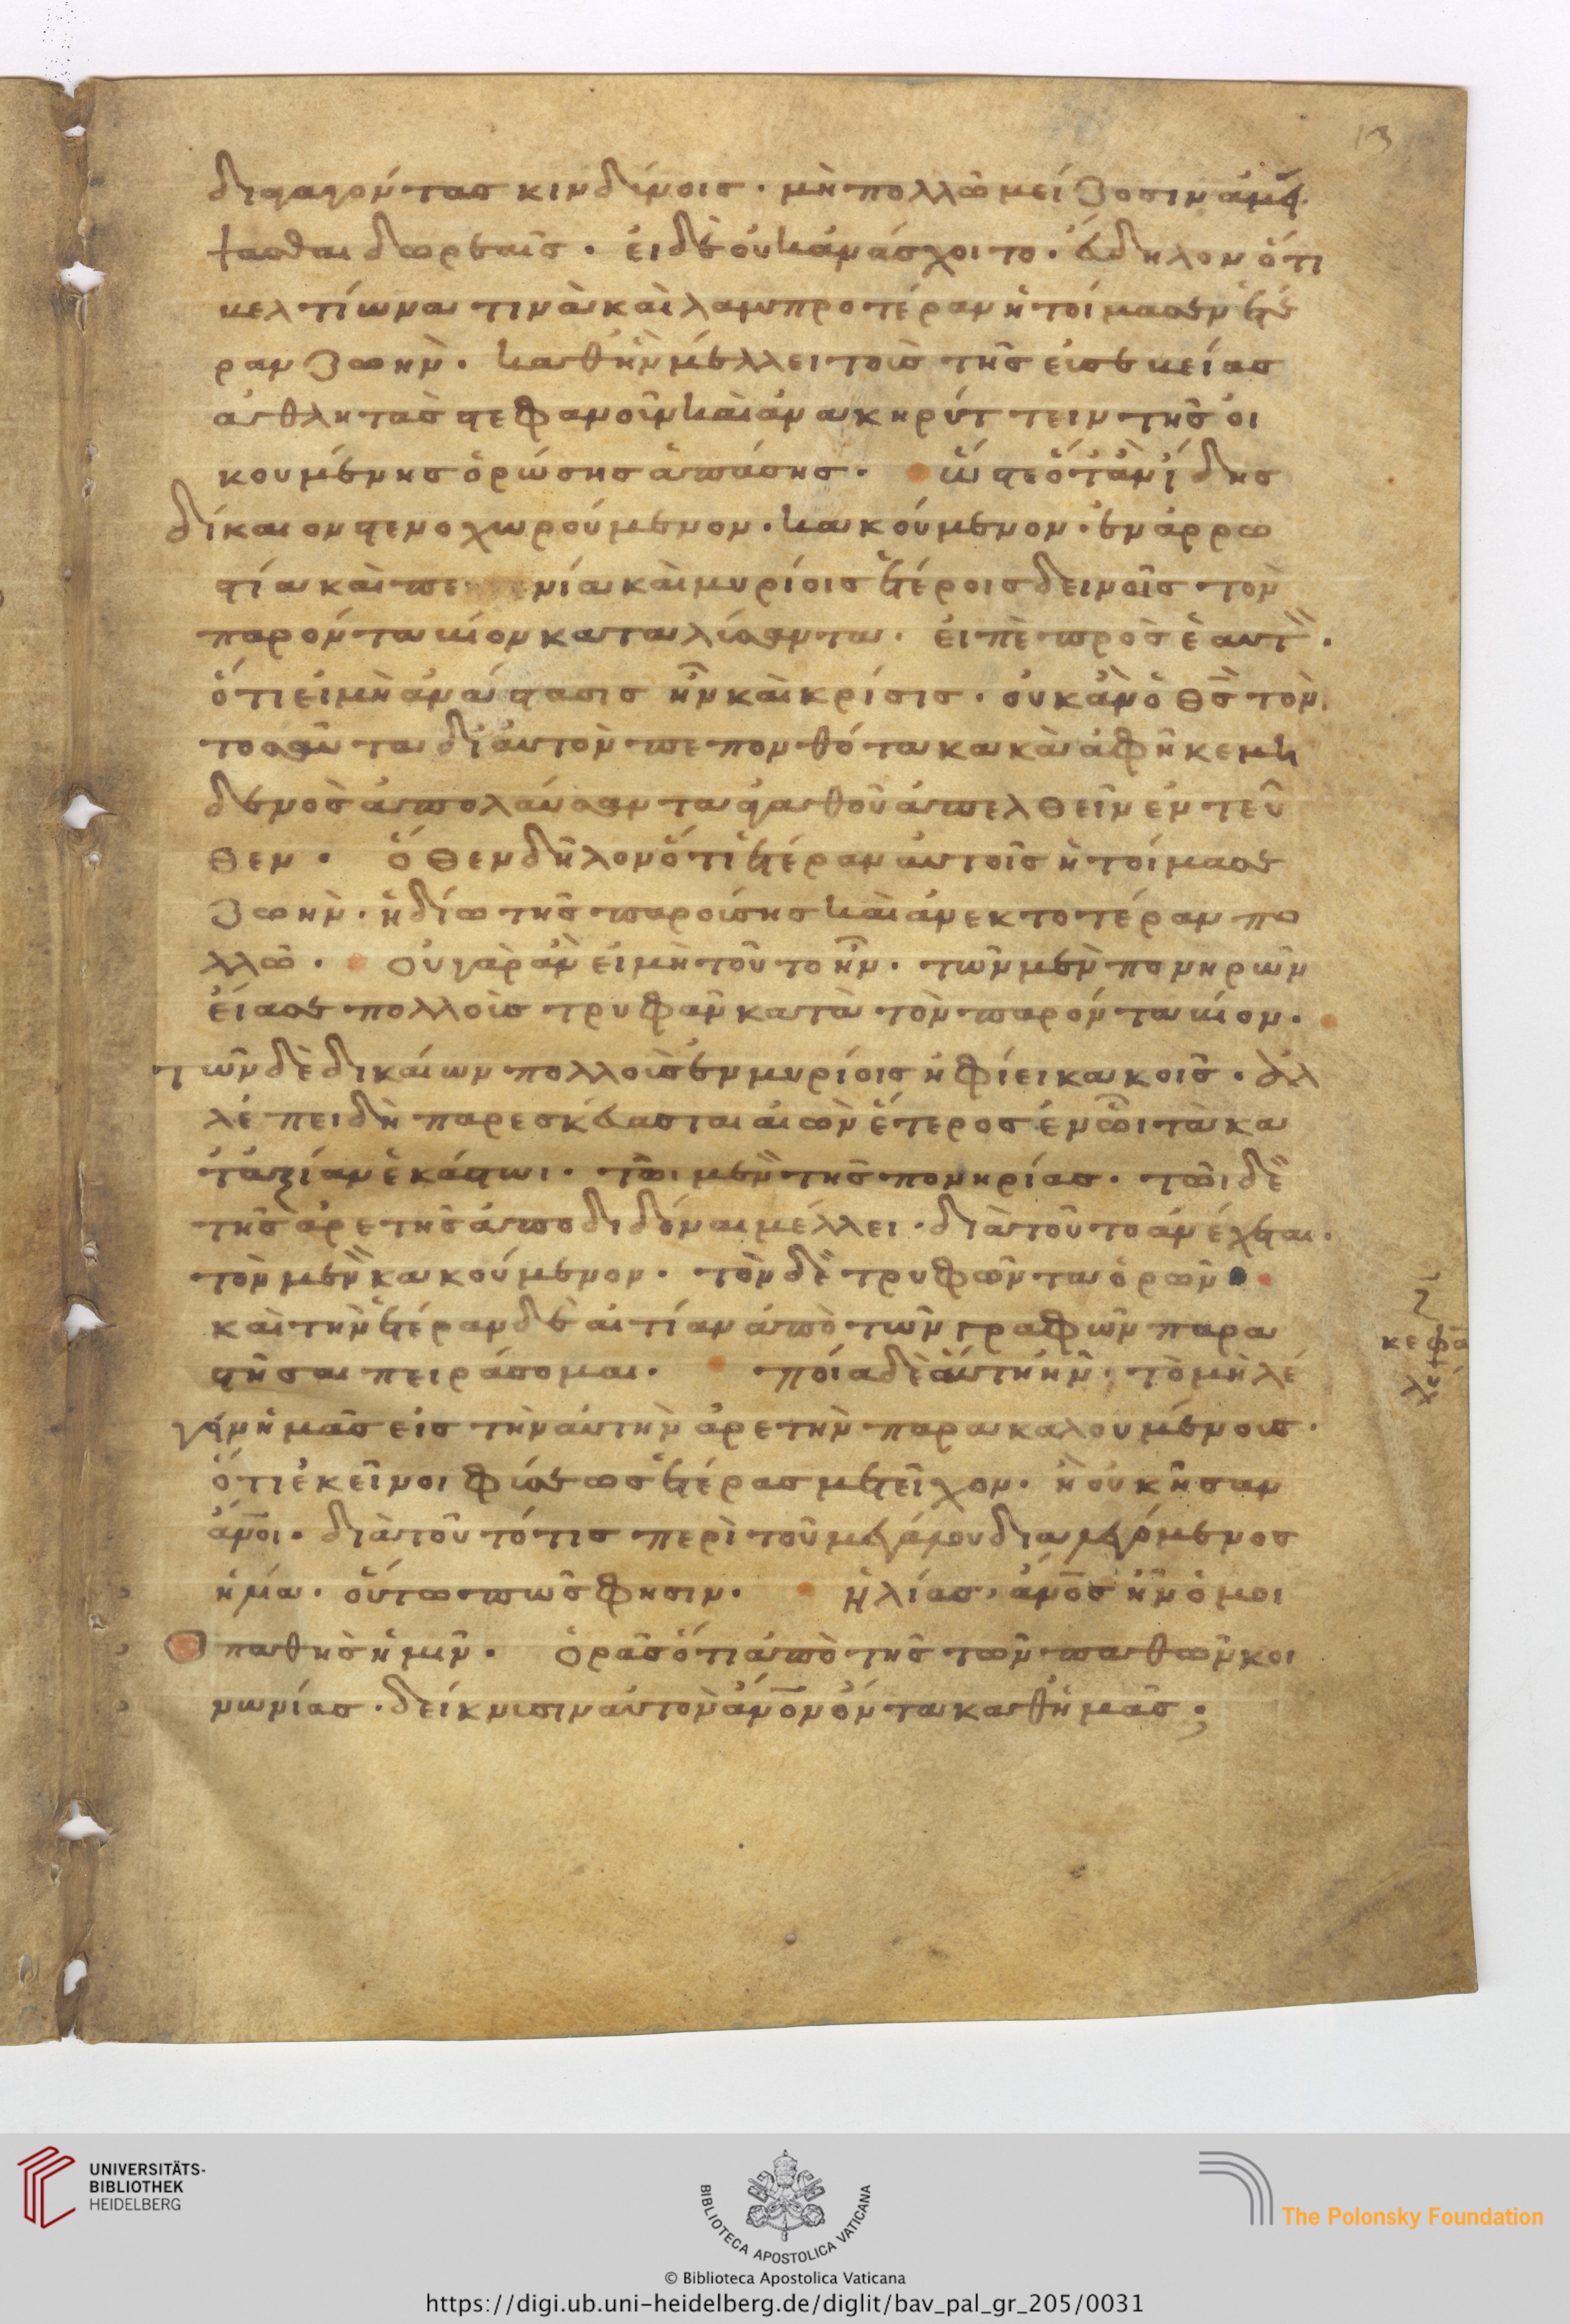 13
διαγαγόντας κινδύνοις · μὴ πολλῶ μείζοσιν ἀμεί
ψασθαι δωρεαῖς · εἰ δὲ οὐκ ἀνάσχοιτο · εὔδηλον ὅτι
βελτίωνα τινὰ καὶ λαμπροτέραν ἡτοίμασεν ἑτέ
ραν ζωὴν · καθ ἣν μέλλει τοὺς τῆς εὐσεβείας
ἀθλητὰς στεφανοῦν καὶ ἀνακηρύττειν τῆς οἰ
κουμένης ὁρώσης ἁπάσης · ὥστε ὅταν ἴδης
δίκαιον στενοχωρούμενον · κακούμενον · ἐν ἀρρω
στία καὶ πενία καὶ μυρίοις ἑτέροις δεινοῖς τὸν
παρόντα βίον καταλύσαντα · εἰπὲ πρὸς ἑαυτὸν ·
ὅτι εἰ μὴ ἀνάστασις ἦν καὶ κρίσις · οὐκ ἂν ὁ θς τὸν
τοσαῦτα δι αὐτὸν πεπονθότα κακὰ ἀφῆκε μη
δενὸς ἀπολαύσαντα ἀγαθοῦ ἀπελθεῖν ἐντεῦ
θεν · ὅθεν δῆλον ὅτι ἑτέραν αὐτοῖς ἡτοίμασε
ζωὴν · ἡδίω τῆς παρούσης καὶ ἀνεκτοτέραν πο
λλῶ · οὐ γὰρ ἂν εἰ μὴ τοῦτο ἦν · τῶν μὲν πονηρῶν
εἴασε πολλοὺς τρυφᾶν κατὰ τὸν παρόντα βίον ·
τῶν δὲ δικαίων πολλοὺς ἐν μυρίοις ἠφίει κακοῖς · ἀλ
λ ἐπειδὴ παρεσκεύασται αἰὼν ἕτερος ἐν ὧι τὰ κα
τ ἀξίαν ἑκάστωι · τῶι μὲν τῆς πονηρίας · τῶι δὲ
τῆς ἀρετῆς ἀποδιδόναι μέλλει · διὰ τοῦτο ἀνέχεται ·
τὸν μὲν κακούμενον · τὸν δὲ τρυφῶντα ὁρῶν
καὶ τὴν ἑτέραν δὲ αἰτίαν ἀπὸ τῶν γραφῶν παρα
στῆσαι πειράσομαι · ποία δὲ αὕτη ἦν · τὸ μὴ λέ
γειν ἡμᾶς εἰς τὴν αὐτὴν ἀρετὴν παρακαλουμένους ·
ὅτι ἐκεῖνοι φύσεως ἑτέρας μετεῖχον · ἢ οὐκ ἦσαν
ἄνοι · διὰ τοῦτό τις περὶ τοῦ μεγάλου διαλεγόμενος
ἡλία · οὕτω πῶς φησιν · ἠλίας ἄνος ἦν ὁμοι
οπαθὴς ἡμῖν · ὁρᾶς ὅτι ἀπὸ τῆς τῶν παθῶν κοι
νωνίας · δείκνυσιν αὐτὸν ἄνον ὄντα καθ ἡμᾶς ·
ζ
κεφά
λε
UNIVERSITÄTS-
BIBLIOTHEK
HEIDELBERG
BIBLIOTECA APOSTOLICA VATICANA
The Polonsky Foundation
© Biblioteca Apostolica Vaticana
https://digi.ub.uni-heidelberg.de/diglit/bav_pal_gr_205/0031